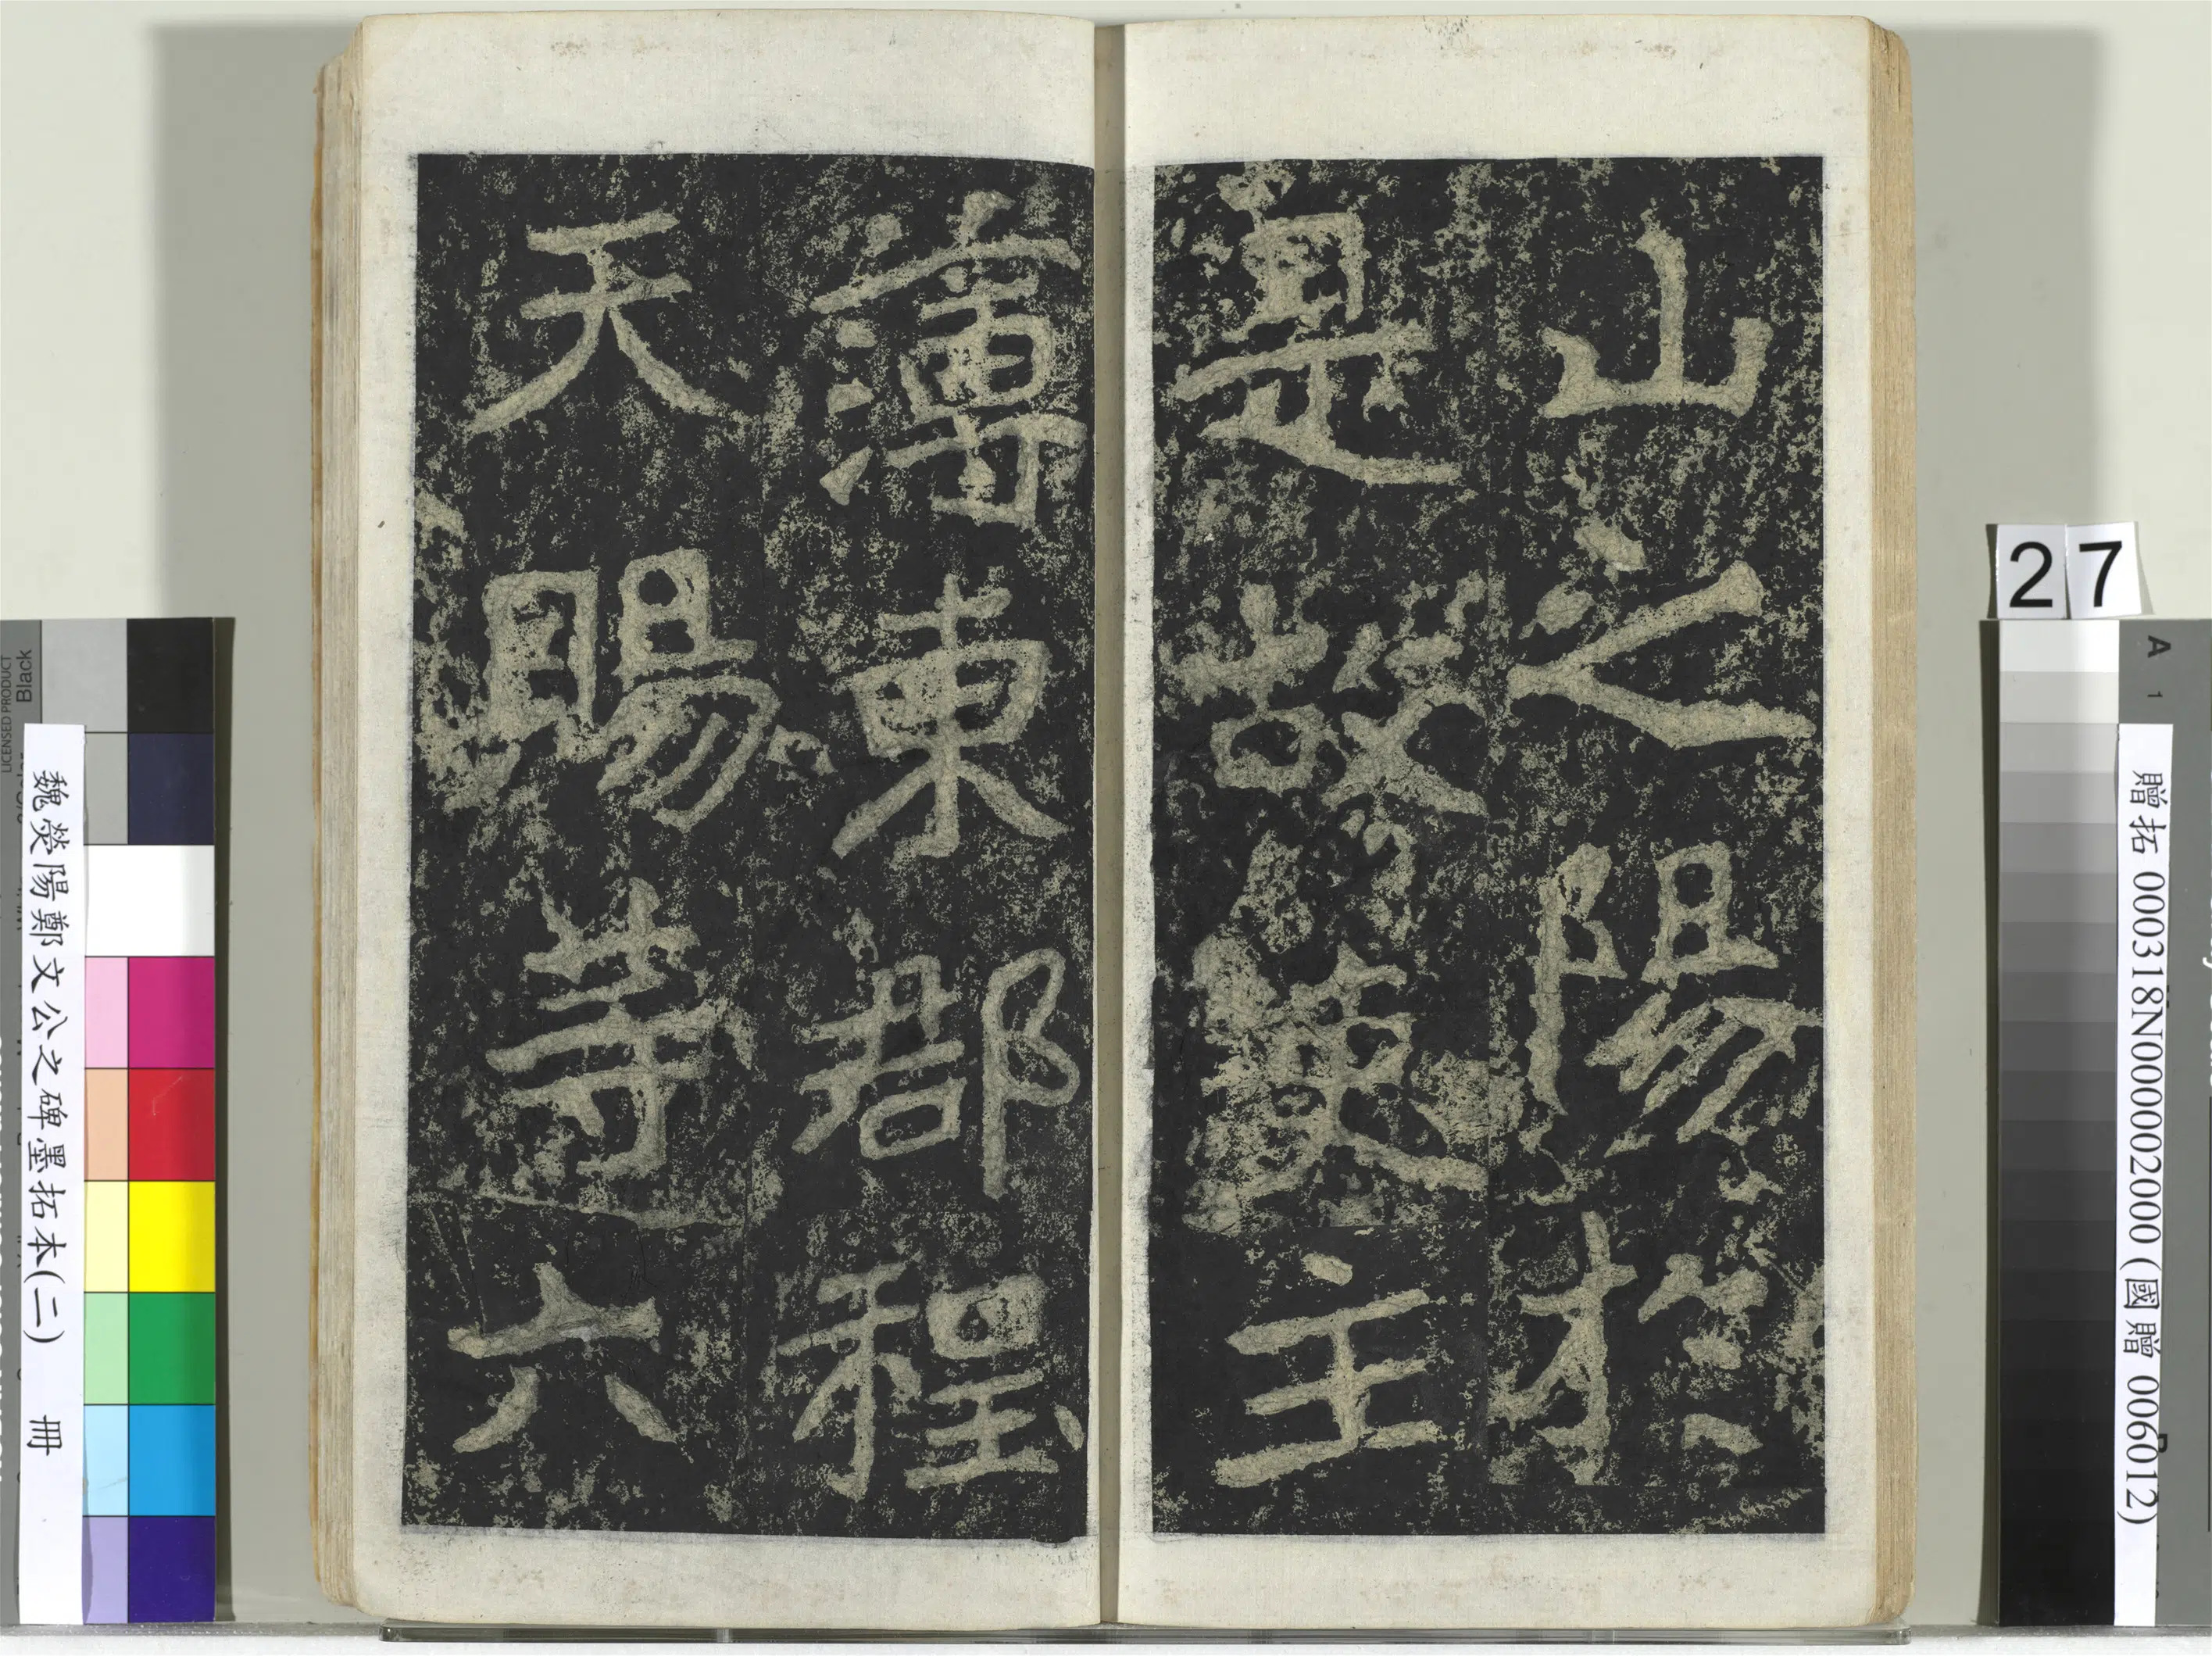 山之陽於
是故吏主
薄東郡程
天賜等六
27
魏滎陽鄭文公之碑墨拓本(二) 冊
贈拓 000318N000002000 (國贈 006012)
Black
LICENSED PRODUCT
A
1